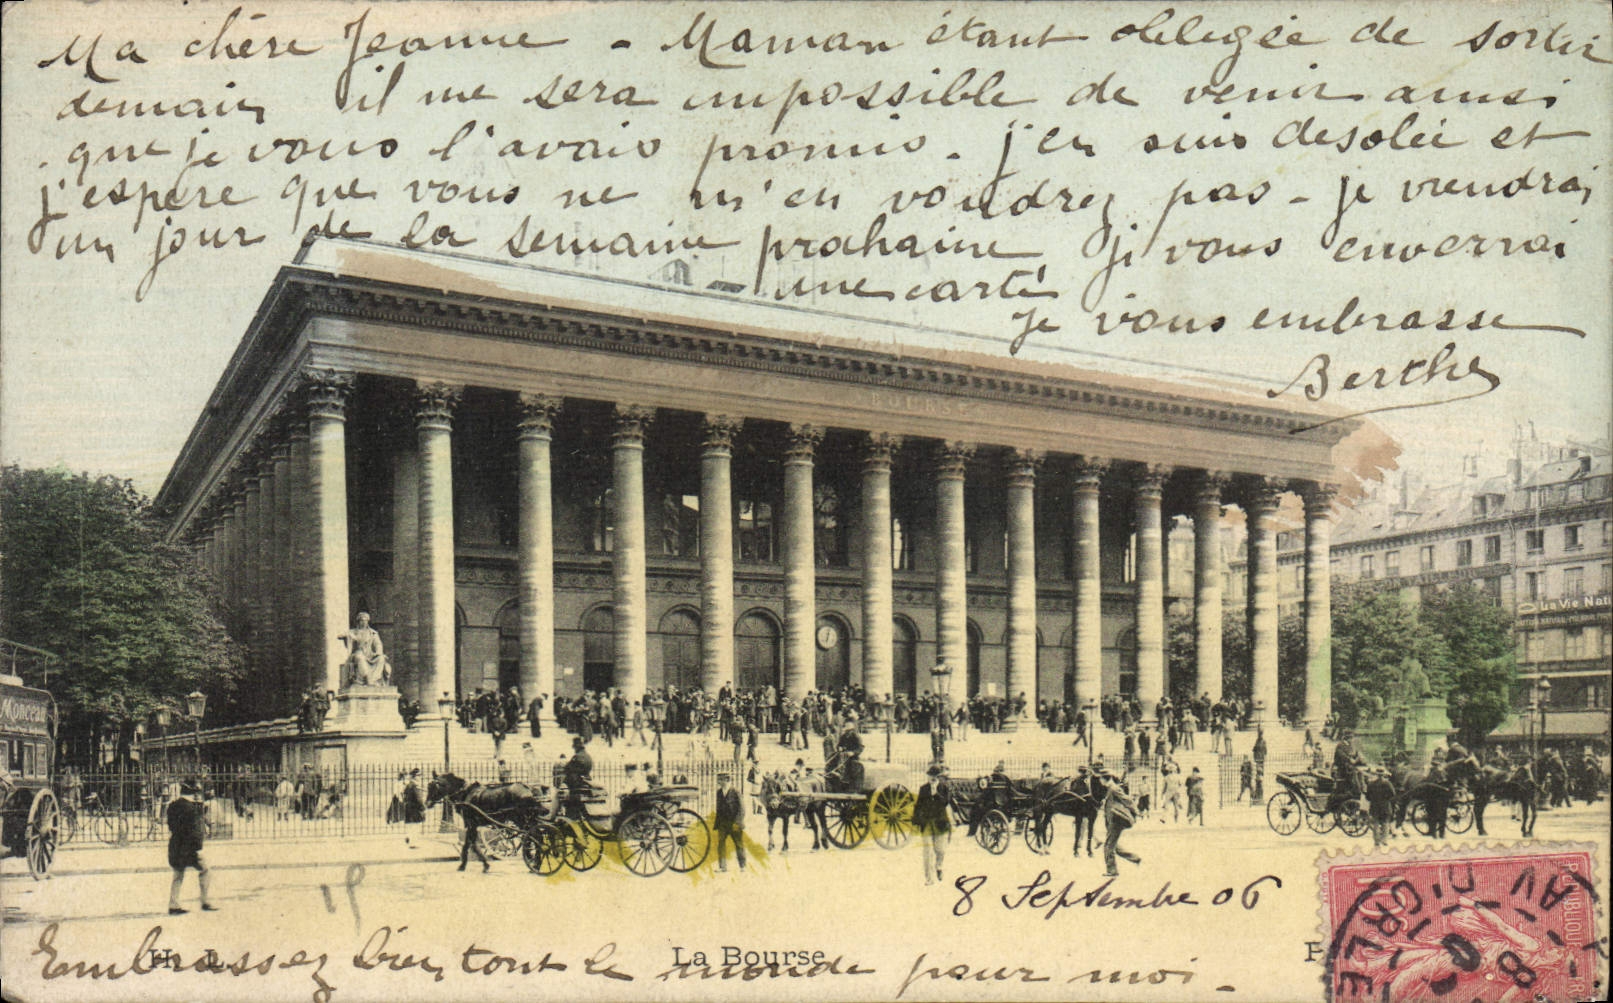 Ma chère Jeanne - Maman étant obligée de sortir
demain il me sera impossible de venir ainsi
que je vous l'avais promis. j'en suis désolée et
j'espère que vous ne m'en voudrez pas - je viendrai
un jour de la semaine prohaine je vous enverrai
une carte
je vous embrasse
Berthe
BOURSE
La Vie Nati
Monceau
8 Septembre 06
15
Embrassez bien tout le monde pour moi.
H. L.
La Bourse
P